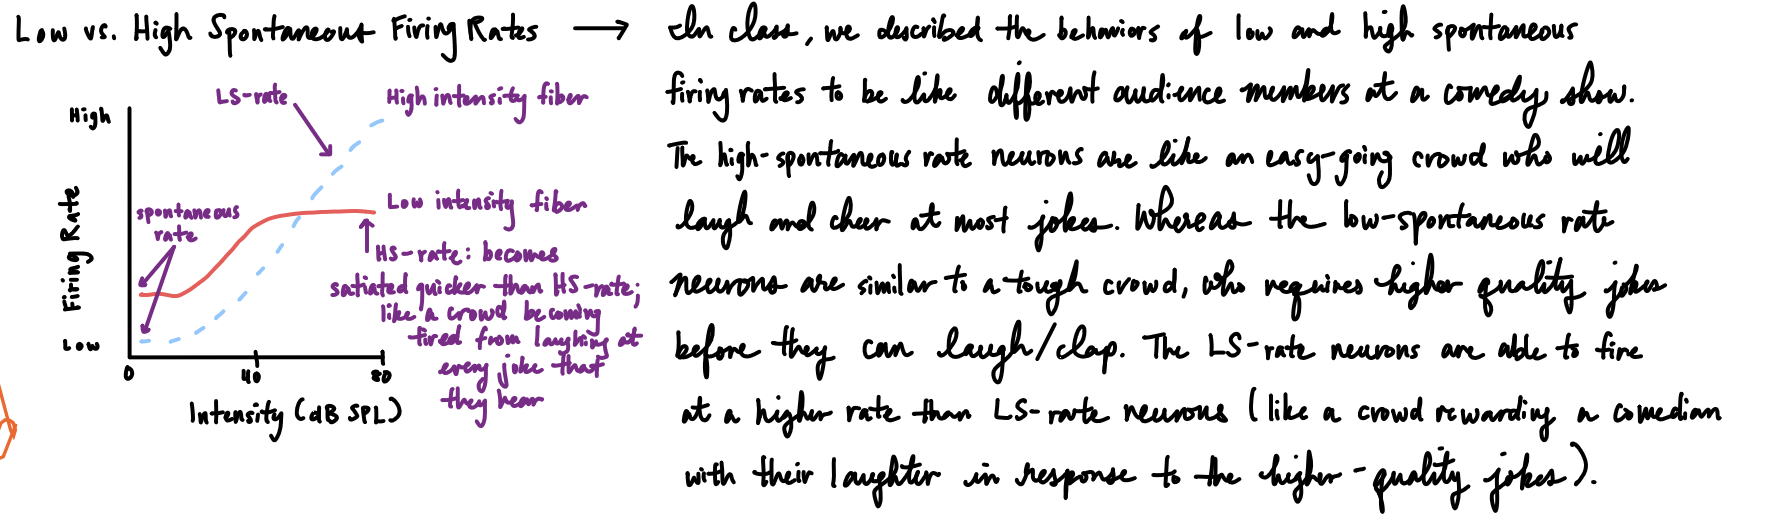 Low vs. High Spontaneous Firing Rates →
LS-rate
High intensity fiber
High
spontaneous
rate
Low intensity fiber
HS-rate: becomes
satiated quicker than HS-rate;
like a crowd becoming
tired from laughing at
every joke that
they hear
Firing Rate
Low
0 40 80
Intensity (dB SPL)
In class, we described the behaviors of low and high spontaneous
firing rates to be like different audience members at a comedy show.
The high-spontaneous rate neurons are like an easy-going crowd who will
laugh and cheer at most jokes. Whereas the low-spontaneous rate
neurons are similar to a tough crowd, who requires higher quality jokes
before they can laugh/clap. The LS-rate neurons are able to fire
at a higher rate than LS-rate neurons (like a crowd rewarding a comedian
with their laughter in response to the higher-quality jokes).